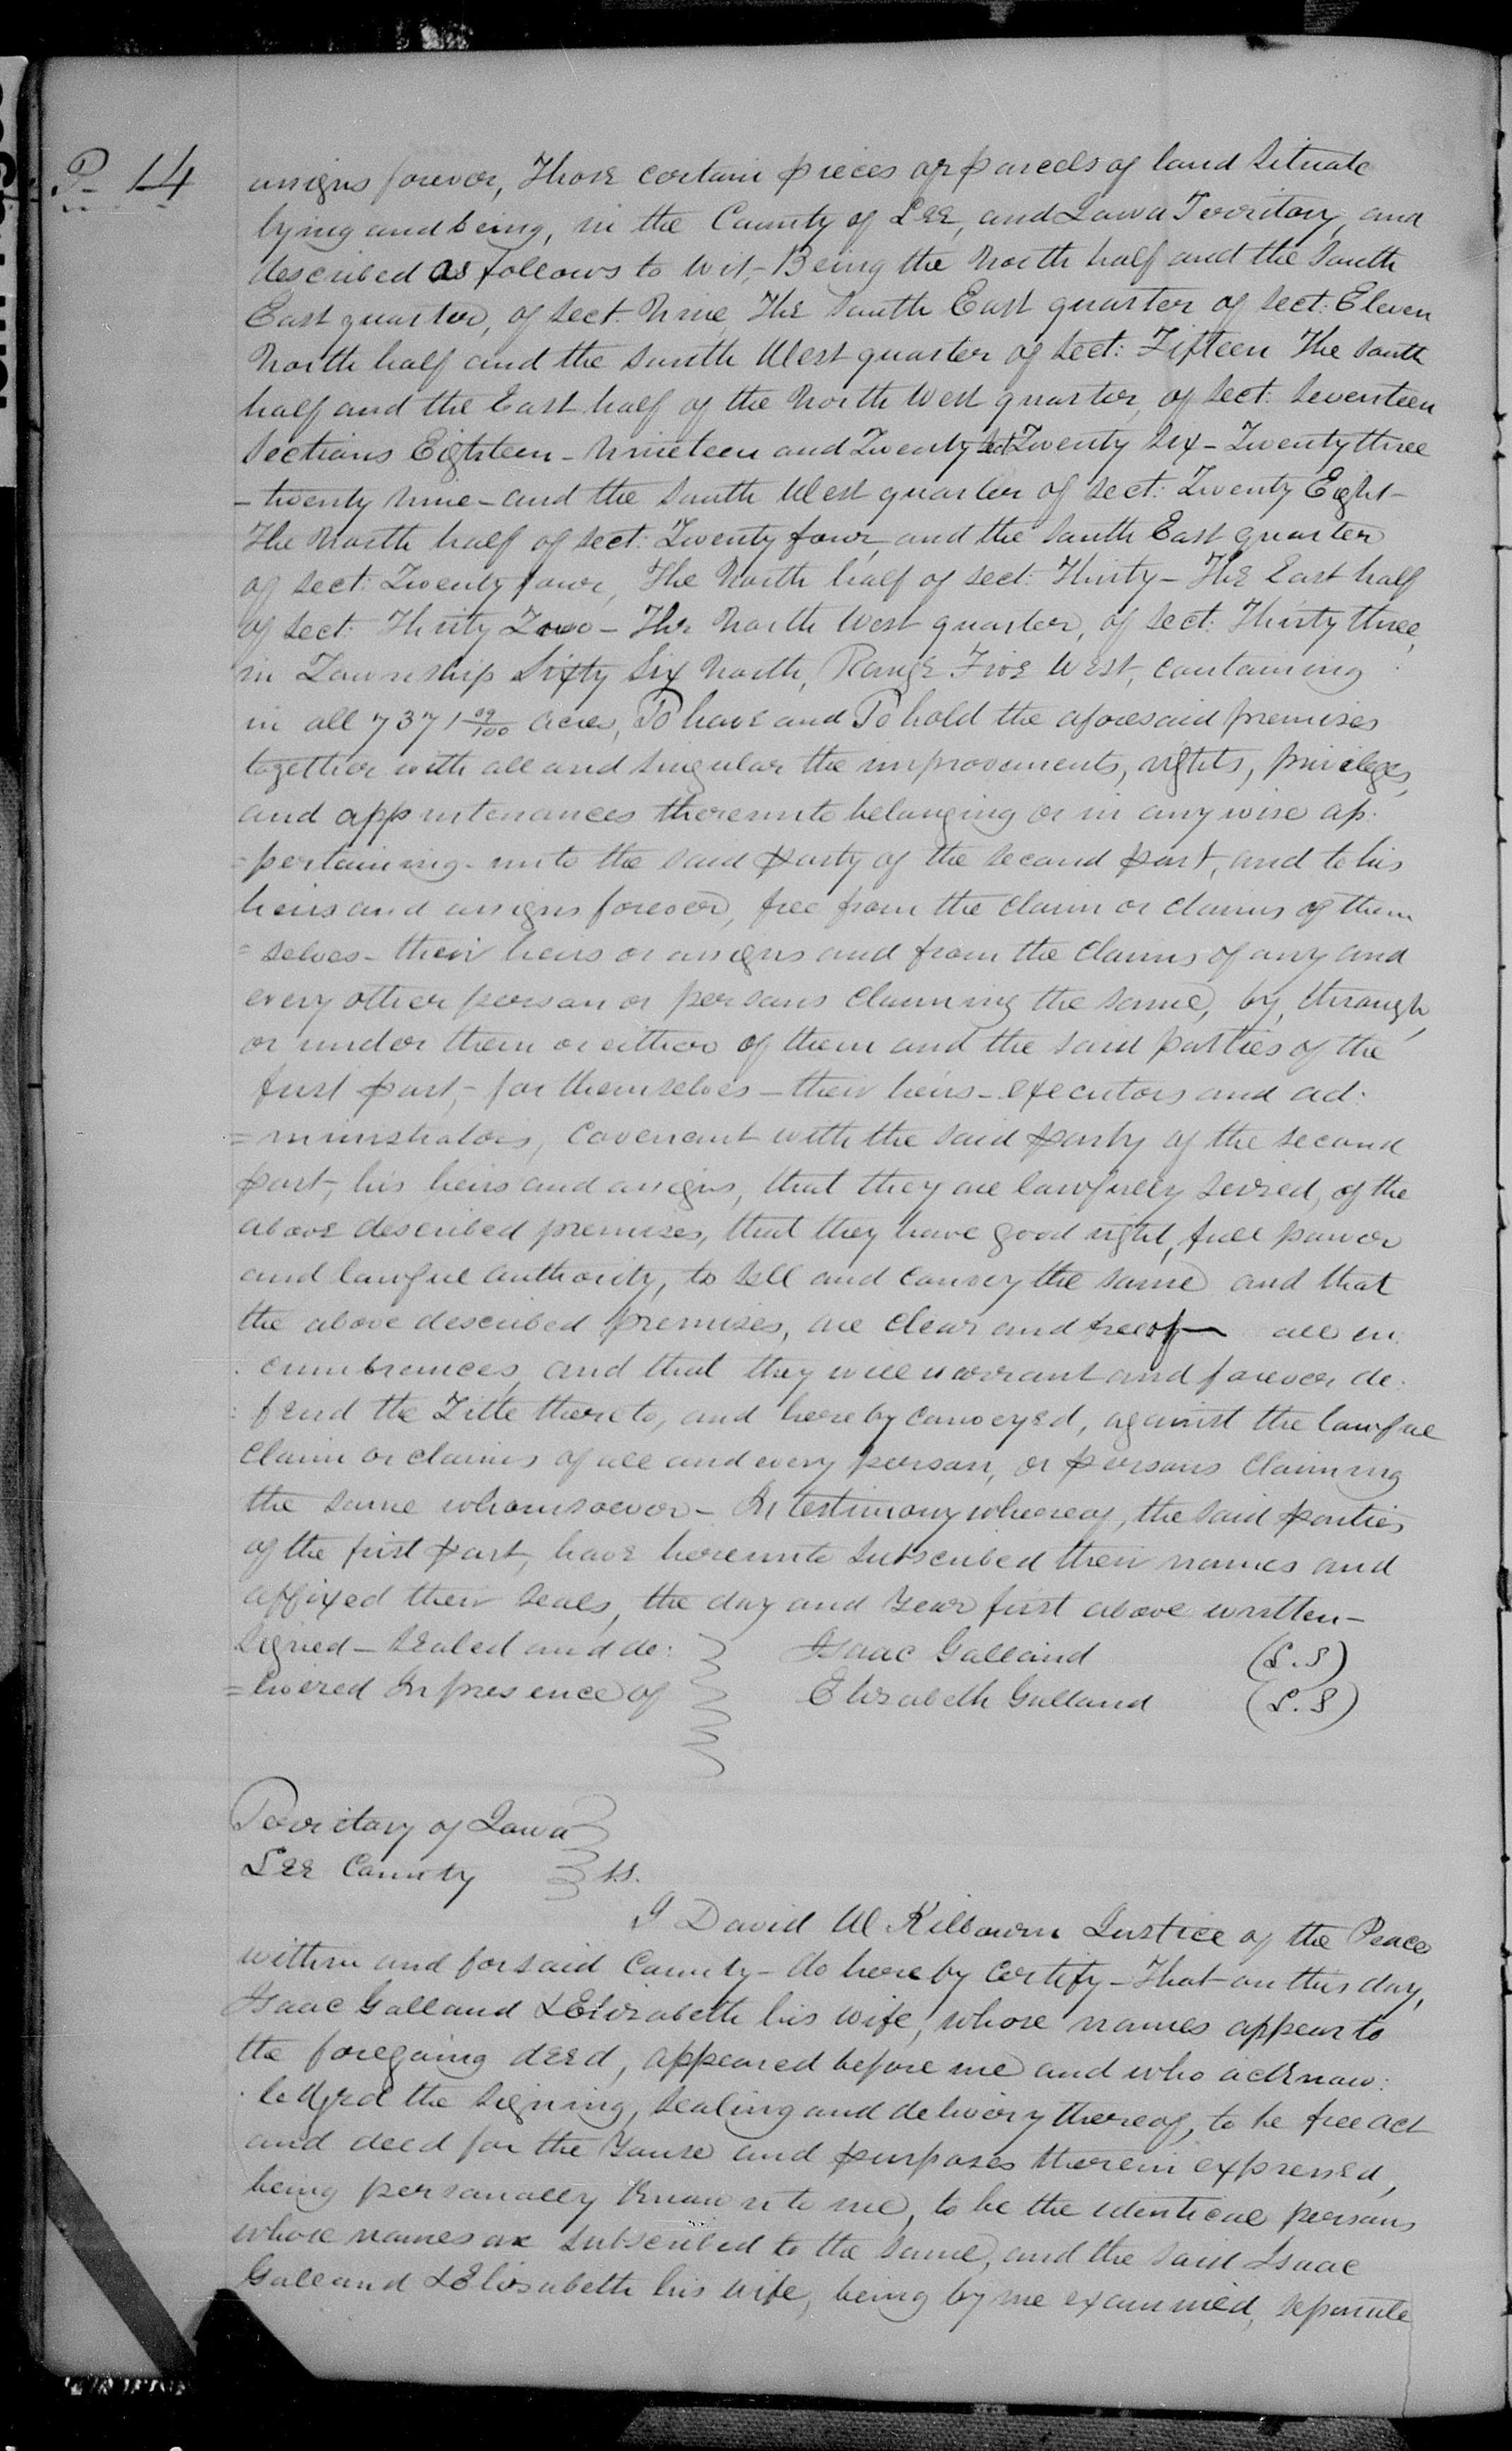 P- 14
assigns forever, Those certain pieces or parcels of land situate
lying and being, in the County of Lee, and Iowa Territory, and
described as follows to wit,- Being the North half and the South
East quarter, of Sect. Nine, The South East quarter of Sect: Eleven
North half and the South West quarter of Sect: Fifteen The South
half and the East half of the North West quarter, of Sect: Seventeen
Sections Eighteen - Nineteen and Twenty Twenty Six - Twenty three
- twenty nine - and the South West quarter of Sect: Twenty Eight -
The North half of Sect: Twenty four, and the South East quarter
of Sect: Twenty four, The North half of Sect: Thirty - The East half
of Sect: Thirty Two - The North West quarter, of Sect: Thirty three,
in Township Sixty Six North, Range Five West, containing
in all 7371 09/100 acres, To have and To hold the aforesaid premises
together with all and singular the improvements, rights, privileges,
and appurtenances thereunto belonging or in any wise ap.
= pertaining - unto the said party of the second part, and to his
heirs and assigns forever, free from the claim or claims of them
= selves - their heirs or assigns and from the claims of any and
every other person or persons claiming the same, by, through,
or under them or either of them and the said parties of the
first part,- for themselves - their heirs - executors and ad:
= ministrators, covenant with the said party of the second
part, his heirs and assigns, that they are lawfully seized, of the
above described premises, that they have good right, full power
and lawful authority, to sell and convey the same and that
the above described premises, are clear and free of all en:
. cumbrances, and that they will warrant and forever de:
: fend the Title thereto, and hereby conveyed, against the lawful
claim or claims of all and every person, or persons claiming
the same whomsoever - In testimony whereof, the said parties
of the first part, have hereunto subscribed their names and
affixed their seals, the day and year first above written -
Signed - Sealed and de: Isaac Galland (L.S)
= livered In presence of Elizabeth Galland (L.S)
Territory of Iowa
Lee County ss.
I David W Kilbourn Justice of the Peace
within and for said County - do hereby certify - That on this day,
Isaac Galland & Elizabeth his wife, whose names appear to
the foregoing deed, appeared before me and who acknow:
. ledged the signing, sealing and delivery thereof, to be free act
and deed for the and purposes therein expressed,
being personally known to me, to be the identical persons
whose names are subscribed to the same, and the said Isaac
Galland & Elisabeth his wife, being by me examined, separate